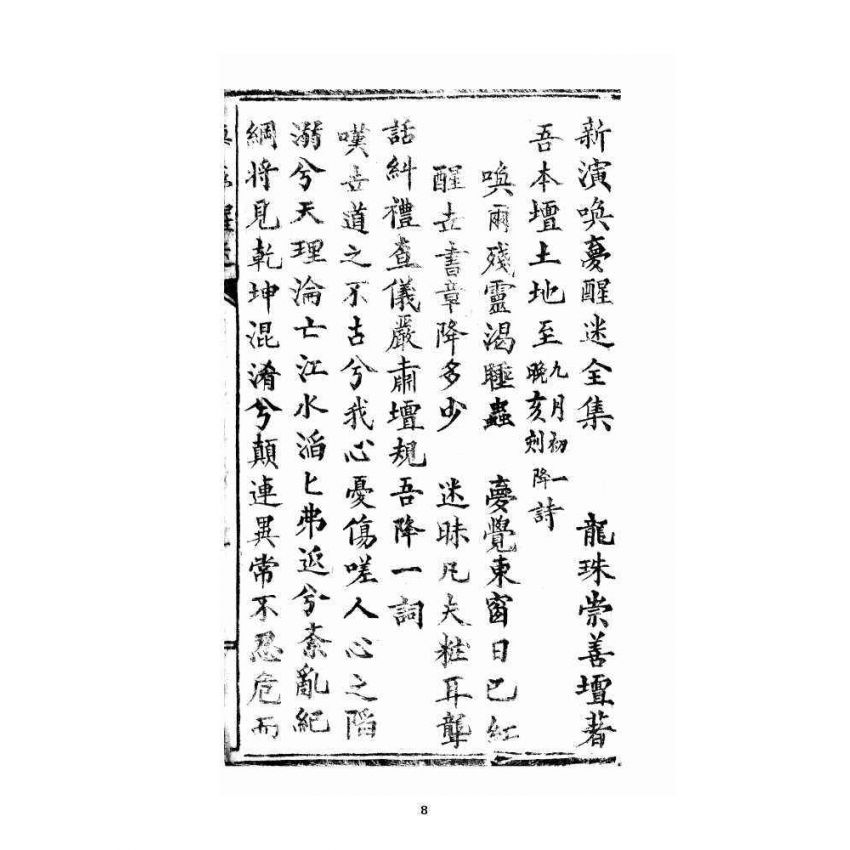 新演喚夢醒迷全集　龍珠崇善壇著
吾本壇土地至九月初一晚亥刻降詩
喚爾殘靈渴睡蟲　夢覺東窗日已紅
醒世書章降多少　迷昧凡夫粧耳聾
話糾禮查儀嚴肅壇規吾降一詞
嘆世道之不古兮我心憂傷嗟人心之陷
溺兮天理淪亡江水滔匕弗返兮紊亂紀
綱將見乾坤混淆兮顛連異常不忍危而
8